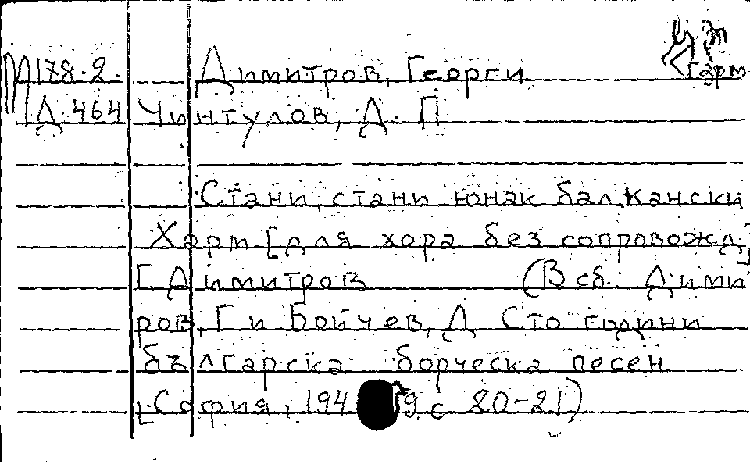 М178.2. Димитров, Георги
Гарм
Д 464 Чинтулов, Д. П
Стани, стани юнак балкански
Харм. [для хора без сопровожд.]
Г. Димитров (В сб. Дими
ров, Г и Бойчев, Д Сто години
българска борческа песен
[София, 194 9 с 20-21)